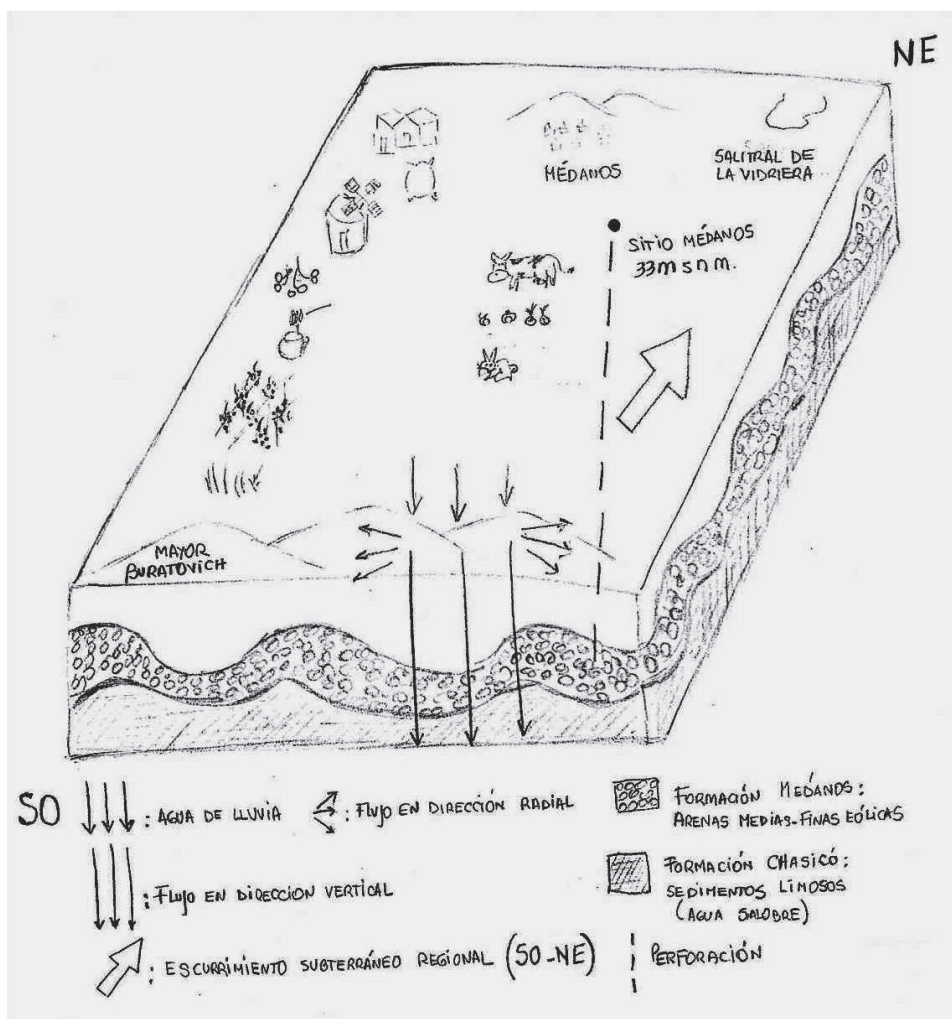 NE
MÉDANOS
SALITRAL DE
LA VIDRIERA
SITIO MÉDANOS
33m s n m.
MAYOR
BURATOVICH
SO
: AGUA DE LLUVIA
: FLUJO EN DIRECCIÓN RADIAL
FORMACIÓN MÉDANOS:
ARENAS MEDIAS-FINAS EÓLICAS
: FLUJO EN DIRECCION VERTICAL
FORMACIÓN CHASICÓ:
SEDIMENTOS LIMOSOS
(AGUA SALOBRE)
: ESCURRIMIENTO SUBTERRÁNEO REGIONAL (SO-NE)
PERFORACIÓN